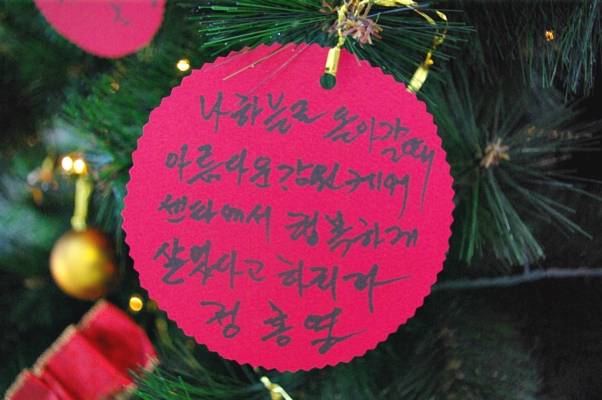 나 하늘로 돌아갈때
아름다운 강원케어
센타에서 행복하게
살았다고 하리라
정 홍 영